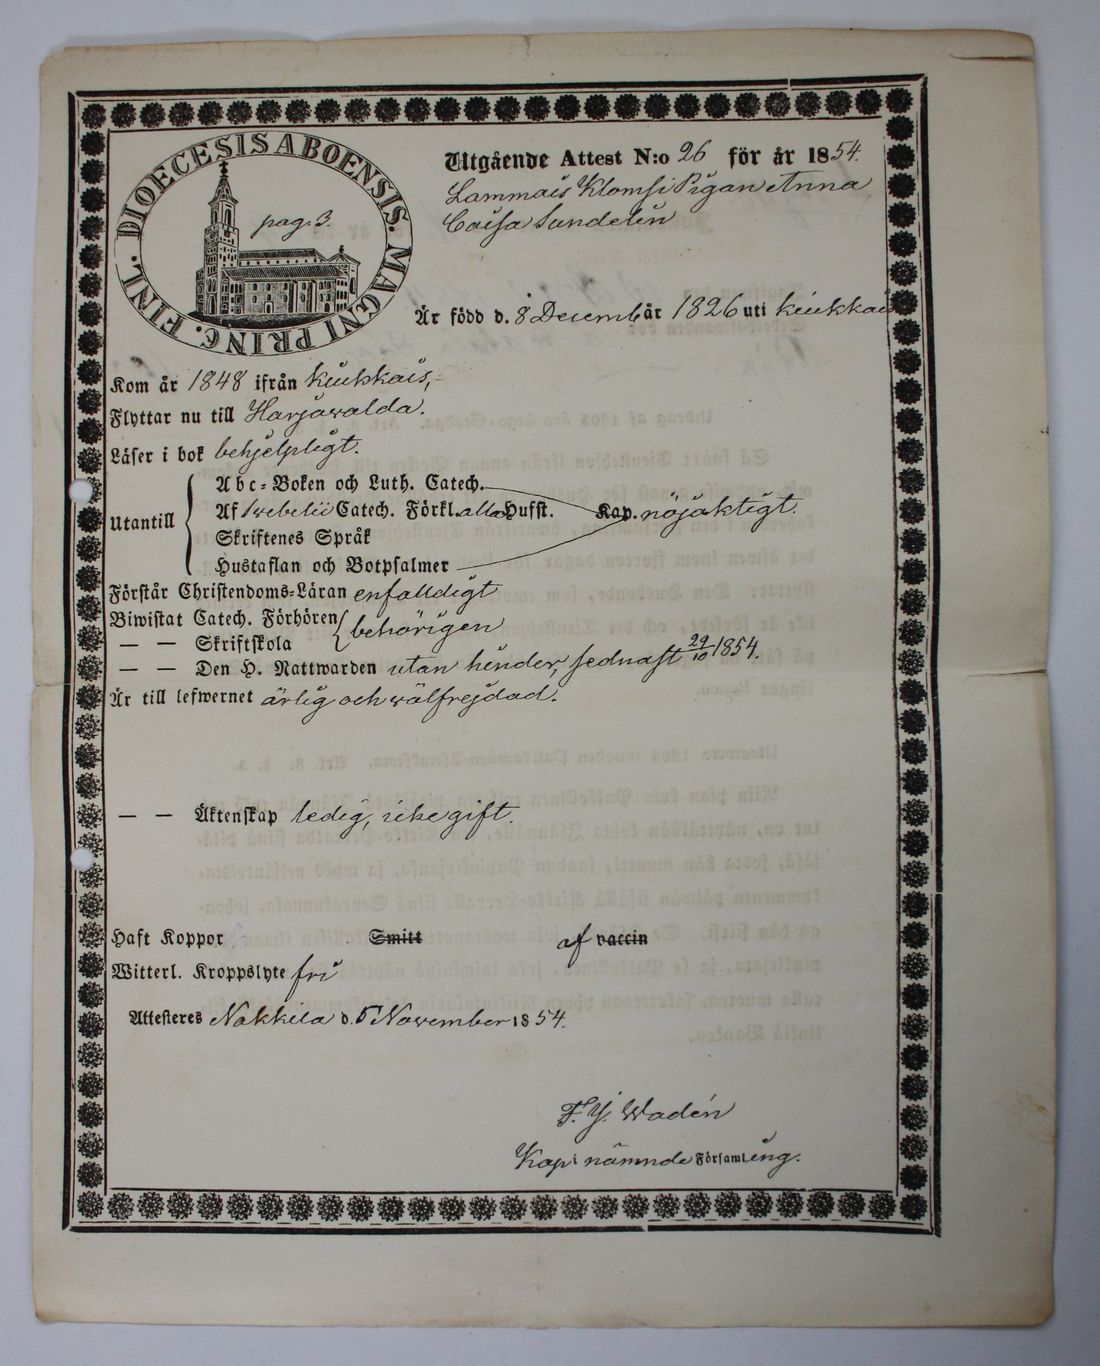 DIOECESIS ABOENSIS. MAGNI PRINC. FINL.
pag. 3.
Utgående Attest N:o 26 för år 1854.
Lammais Klomsi Pigan Anna
Caisa Sundelin
Är född d. 8 Decemb år 1826 uti Kiukkais
Kom år 1848 ifrån Kiukkais,
Flyttar nu till Harjavalda.
Läser i bok behjelpligt.
Utantill
Abc-Boken och Luth. Catech.
Af Swebelii Catech. Förkl. alla Hufst. Kap. nöjaktigt.
Skriftenes Språk
Hustaflan och Botpsalmer
Förstår Christendoms-Läran enfalldigt
Biwistat Catech. Förhören behörigen
— — Skriftskola
— — Den H. Nattwarden utan hinder, sednast 29/10 1854.
Är till lefwernet ärlig och wälfrejdad.
— — Äktenskap ledig, icke gift.
Haft Koppor Smitt af vaccin
Witterl. Kroppslyte fri
Attesteres Nakkila d. 5 November 1854.
F. Y. Wadén
Kap i nämnde Församling.